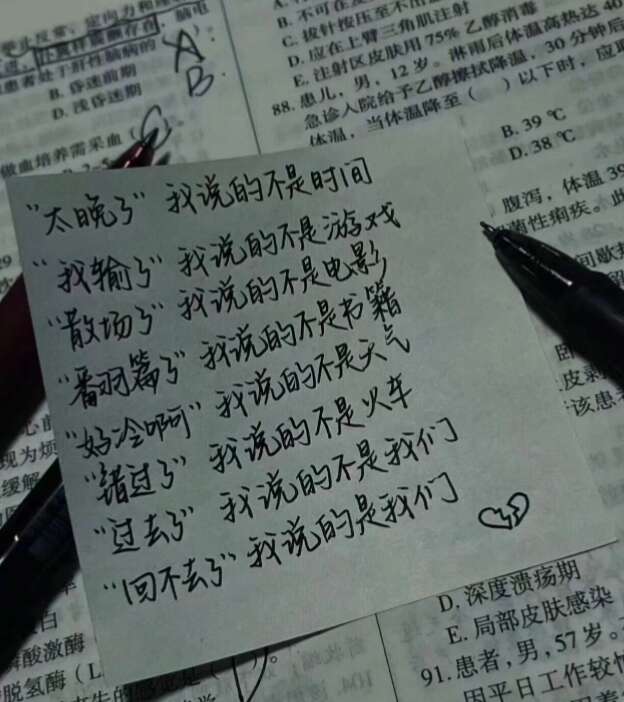 B. 昏迷前期
D. 浅昏迷期
A.
B.
C. 拔针按压至不出
D. 应在上臂三角肌注射
E. 注射区皮肤用 75% 乙醇消毒
88. 患儿，男，12 岁。淋雨后体温高热达 40
急诊入院给予乙醇擦拭降温，30 分钟后
体温，当体温降至（ ）以下时，应取
B. 39 ℃
D. 38 ℃
做血培养需采血（
腹泻，体温 39
菌性痢疾。此
“太晚了” 我说的不是时间
“我输了” 我说的不是游戏
“散场了” 我说的不是电影
“翻篇了” 我说的不是书籍
“好冷啊” 我说的不是天气
“错过了” 我说的不是火车
“过去了” 我说的不是我们
“回不去了” 我说的是我们
D. 深度溃疡期
E. 局部皮肤感染
91. 患者，男，57 岁。
因平日工作较忙
酸激酶
脱氢酶（L